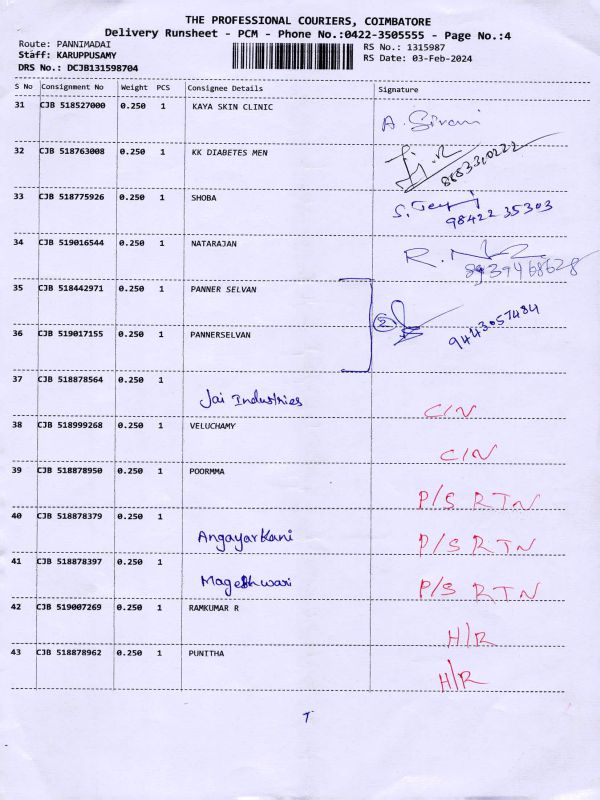 THE PROFESSIONAL COURIERS, COIMBATORE
Delivery Runsheet - PCM - Phone No.:0422-3505555 - Page No.:4
Route: PANNIMADAI RS No.: 1315987
Staff: KARUPPUSAMY RS Date: 03-Feb-2024
DRS No.: DCJB131598704
S No Consignment No Weight PCS Consignee Details Signature
31 CJB 518527000 0.250 1 KAYA SKIN CLINIC
32 CJB 518763008 0.250 1 KK DIABETES MEN
33 CJB 518775926 0.250 1 SHOBA
98422 35303
34 CJB 519016544 0.250 1 NATARAJAN
8939468628
35 CJB 518442971 0.250 1 PANNER SELVAN
2
9443057484
36 CJB 519017155 0.250 1 PANNERSELVAN
37 CJB 518878564 0.250 1
Jai Industries C/N
38 CJB 518999268 0.250 1 VELUCHAMY
C/N
39 CJB 518878950 0.250 1 POORMMA
P/S RTN
40 CJB 518878379 0.250 1
Angayarkani P/S RTN
41 CJB 518878397 0.250 1
Mageshwari P/S RTN
42 CJB 519007269 0.250 1 RAMKUMAR R
H/R
43 CJB 518878962 0.250 1 PUNITHA
H/R